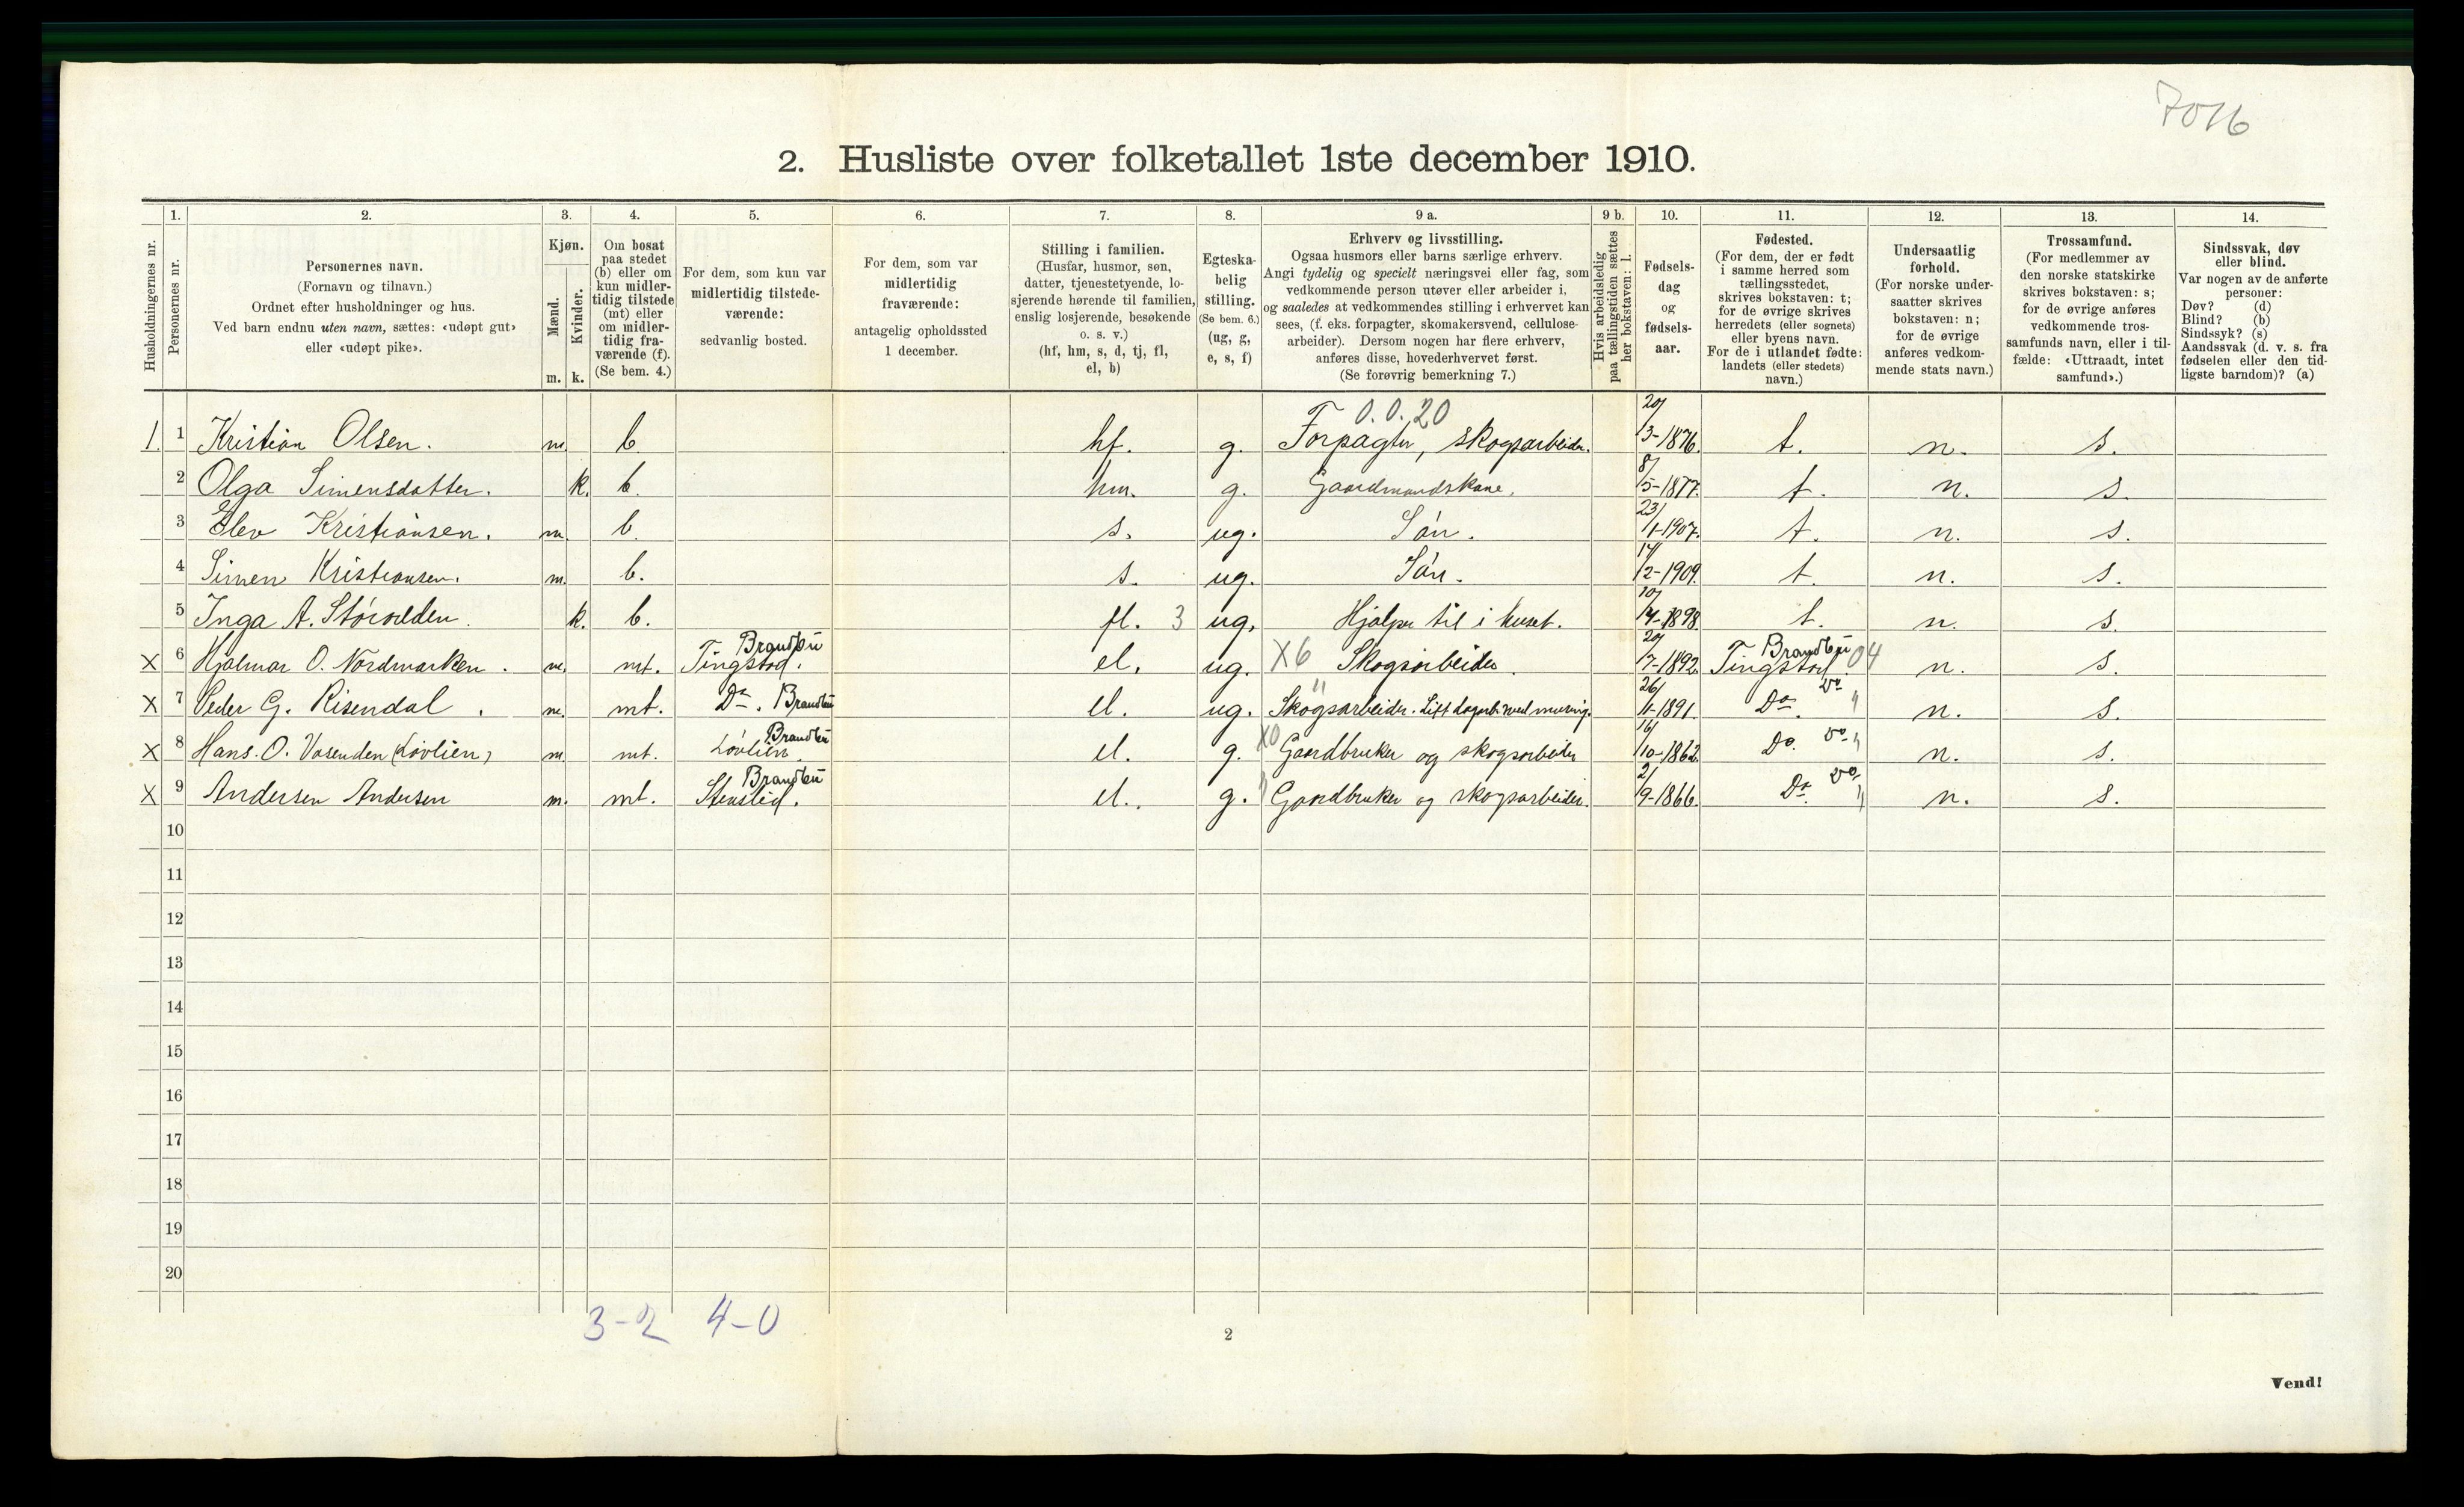 7016
2. Husliste over folketallet 1ste december 1910.
1. 2. 3. 4. 5. 6. 7. 8. 9 a. 9 b. 10. 11. 12. 13. 14.
Husholdningernes nr.
Personernes nr.
Personernes navn.
(Fornavn og tilnavn.)
Ordnet efter husholdninger og hus.
Ved barn endnu uten navn, sættes: «udøpt gut»
eller «udøpt pike».
Kjøn.
Mænd.
Kvinder.
m. k.
Om bosat
paa stedet
(b) eller om
kun midler-
tidig tilstede
(mt) eller
om midler-
tidig fra-
værende (f).
(Se bem. 4.)
For dem, som kun var
midlertidig tilstede-
værende:
sedvanlig bosted.
For dem, som var
midlertidig
fraværende:
antagelig opholdssted
1 december.
Stilling i familien.
(Husfar, husmor, søn,
datter, tjenestetyende, lo-
sjerende hørende til familien,
enslig losjerende, besøkende
o. s. v.)
(hf, hm, s, d, tj, fl,
el, b)
Egteska-
belig
stilling.
(Se bem. 6.)
(ug, g,
e, s, f)
Erhverv og livsstilling.
Ogsaa husmors eller barns særlige erhverv.
Angi tydelig og specielt næringsvei eller fag, som
vedkommende person utøver eller arbeider i,
og saaledes at vedkommendes stilling i erhvervet kan
sees, (f. eks. forpagter, skomakersvend, cellulose-
arbeider). Dersom nogen har flere erhverv,
anføres disse, hovederhvervet først.
(Se forøvrig bemerkning 7.)
Hvis arbeidsledig
paa tællingstiden sættes
her bokstaven: l.
Fødsels-
dag
og
fødsels-
aar.
Fødested.
(For dem, der er født
i samme herred som
tællingsstedet,
skrives bokstaven: t;
for de øvrige skrives
herredets (eller sognets)
eller byens navn.
For de i utlandet fødte:
landets (eller stedets)
navn.)
Undersaatlig
forhold.
(For norske under-
saatter skrives
bokstaven: n;
for de øvrige
anføres vedkom-
mende stats navn.)
Trossamfund.
(For medlemmer av
den norske statskirke
skrives bokstaven: s;
for de øvrige anføres
vedkommende tros-
samfunds navn, eller i til-
fælde: «Uttraadt, intet
samfund».)
Sindssvak, døv
eller blind.
Var nogen av de anførte
personer:
Døv? (d)
Blind? (b)
Sindssyk? (s)
Aandssvak (d. v. s. fra
fødselen eller den tid-
ligste barndom)? (a)
F 0.0.20
1. 1 Kristian Olsen. m. b. hf. g. Forpagter, skogsarbeider. 20/3-1876. t. n. s.
2 Olga Simensdatter. k. b. hm. g. Gaardmandskone. 8/5-1877. t. n. s.
3 Elev Kristiansen. m. b. s. ug. Sön. 23/1-1907. t. n. s.
4 Simen Kristiansen. m. b. s. ug. Sön. 14/2-1909. t. n. s.
5 Inga A. k. b. fl. 3 ug. Hjælper til i huset. 10/4-1898. t. n. s.
X 6 Hjalmar O. Nordmarken. m. mt. Tingstad. Brandbu el. ug. X6 Skogsarbeider. 20/7-1892 Tingstad. Brandbu 04 n. s.
X 7 Peder G. Risendal. m. mt. Do. Brandbu el. ug. " Skogsarbeider. 26/11-1891. Do. Do " n. s.
X 8 Hans. O. Vasenden (Lövlien) m. mt. Lövlien. Brandbu el. g. X0 Gaardbruker og skogsarbeider 16/10-1862. Do. Do " n. s.
X 9 Andersen Andersen m. mt. Brandbu el. g. " Gaardbruker og skogsarbeider. 2/9-1866. Do. Do " n. s.
10
11
12
13
14
15
16
17
18
19
20
3-2 4-0
2
Vend!